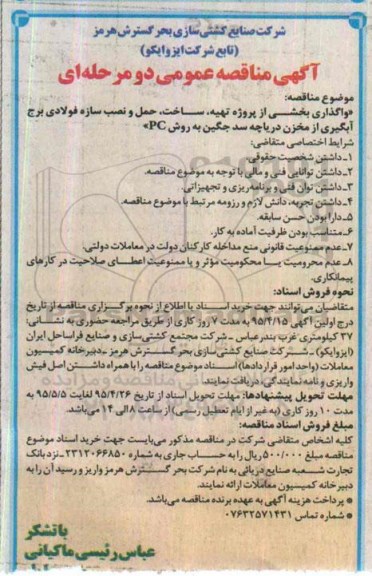 شرکت صنایع کشتی‌سازی بحر گسترش هرمز
(تابع شرکت ایزوایکو)
آگهی مناقصه عمومی دو مرحله‌ای
موضوع مناقصه:
«واگذاری بخشی از پروژه تهیه، ساخت، حمل و نصب سازه فولادی برج
آبگیری از مخزن دریاچه سد جگین به روش PC»
شرایط اختصاصی متقاضی:
۱ـ داشتن شخصیت حقوقی
۲ـ داشتن توانایی فنی و مالی با توجه به موضوع مناقصه.
۳ـ داشتن توان فنی و برنامه‌ریزی و تجهیزاتی.
۴ـ داشتن تجربه، دانش لازم و رزومه مرتبط با موضوع مناقصه.
۵ـ دارا بودن حسن سابقه.
۶ـ متناسب بودن ظرفیت آماده به کار.
۷ـ عدم ممنوعیت قانونی منع مداخله کارکنان دولت در معاملات دولتی.
۸ـ عدم محرومیت یا محکومیت مؤثر و یا ممنوعیت اعطای صلاحیت در کارهای
پیمانکاری.
نحوه فروش اسناد:
متقاضیان می‌توانند جهت خرید اسناد با اطلاع از نحوه برگزاری مناقصه از تاریخ
درج اولین آگهی ۹۵/۴/۱۵ به مدت ۷ روز کاری از طریق مراجعه حضوری به نشانی:
۳۷ کیلومتری غرب بندرعباس ـ شرکت مجتمع کشتی‌سازی و صنایع فراساحل ایران
(ایزوایکو) ـ شرکت صنایع کشتی‌سازی بحر گسترش هرمز ـ دبیرخانه کمیسیون
معاملات (واحد امور قراردادها) اسناد موضوع مناقصه را با همراه داشتن اصل فیش
واریزی و نامه نمایندگی، دریافت نمایند.
مهلت تحویل پیشنهادها: مهلت تحویل اسناد از تاریخ ۹۵/۴/۲۶ لغایت ۹۵/۵/۵ به
مدت ۱۰ روز کاری (به غیر از ایام تعطیل رسمی) از ساعت ۸ الی ۱۴ می‌باشد.
مبلغ فروش اسناد مناقصه:
کلیه اشخاص متقاضی شرکت در مناقصه مذکور می‌بایست جهت خرید اسناد موضوع
مناقصه مبلغ ۵۰۰/۰۰۰ ریال را به حساب جاری به شماره ۲۳۱۲۰۶۶۸۵۰ ـ نزد بانک
تجارت شعبه صنایع دریائی به نام شرکت بحر گسترش هرمز واریز و رسید آن را به
دبیرخانه کمیسیون معاملات ارائه نمایند.
● پرداخت هزینه آگهی به عهده برنده مناقصه می‌باشد.
● شماره تماس ۰۷۶۳۲۵۷۱۴۳۱
با تشکر
عباس رئیسی ماکیانی